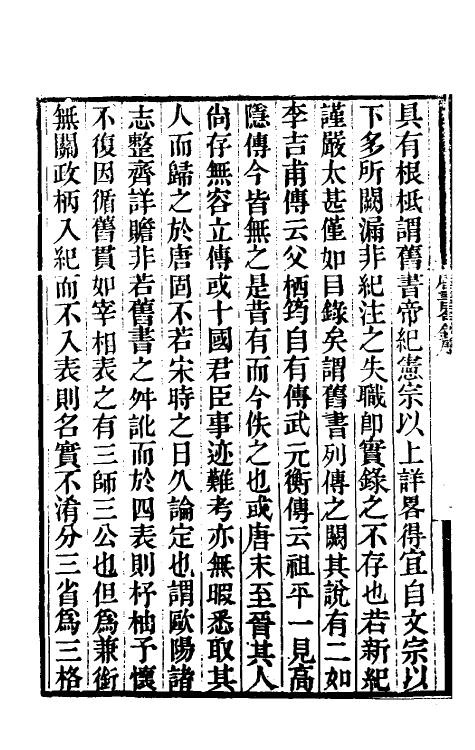 具有根柢謂舊書帝紀憲宗以上詳畧得宜自文宗以
下多所闕漏非紀注之失職卽實錄之不存也若新紀
謹嚴太甚僅如目錄矣謂舊書列傳之闕其說有二如
李吉甫傳云父栖筠自有傳武元衡傳云祖平一見高
隱傳今皆無之是昔有而今佚之也或唐末至晉其人
尙存無容立傳或十國君臣事迹難考亦無暇悉取其
人而歸之於唐固不若宋時之日久論定也謂歐陽諸
志整齊詳贍非若舊書之舛訛而於四表則杼柚予懷
不復因循舊貫如宰相表之有三師三公也但爲兼銜
無關政柄入紀而不入表則名實不淆分三省爲三格